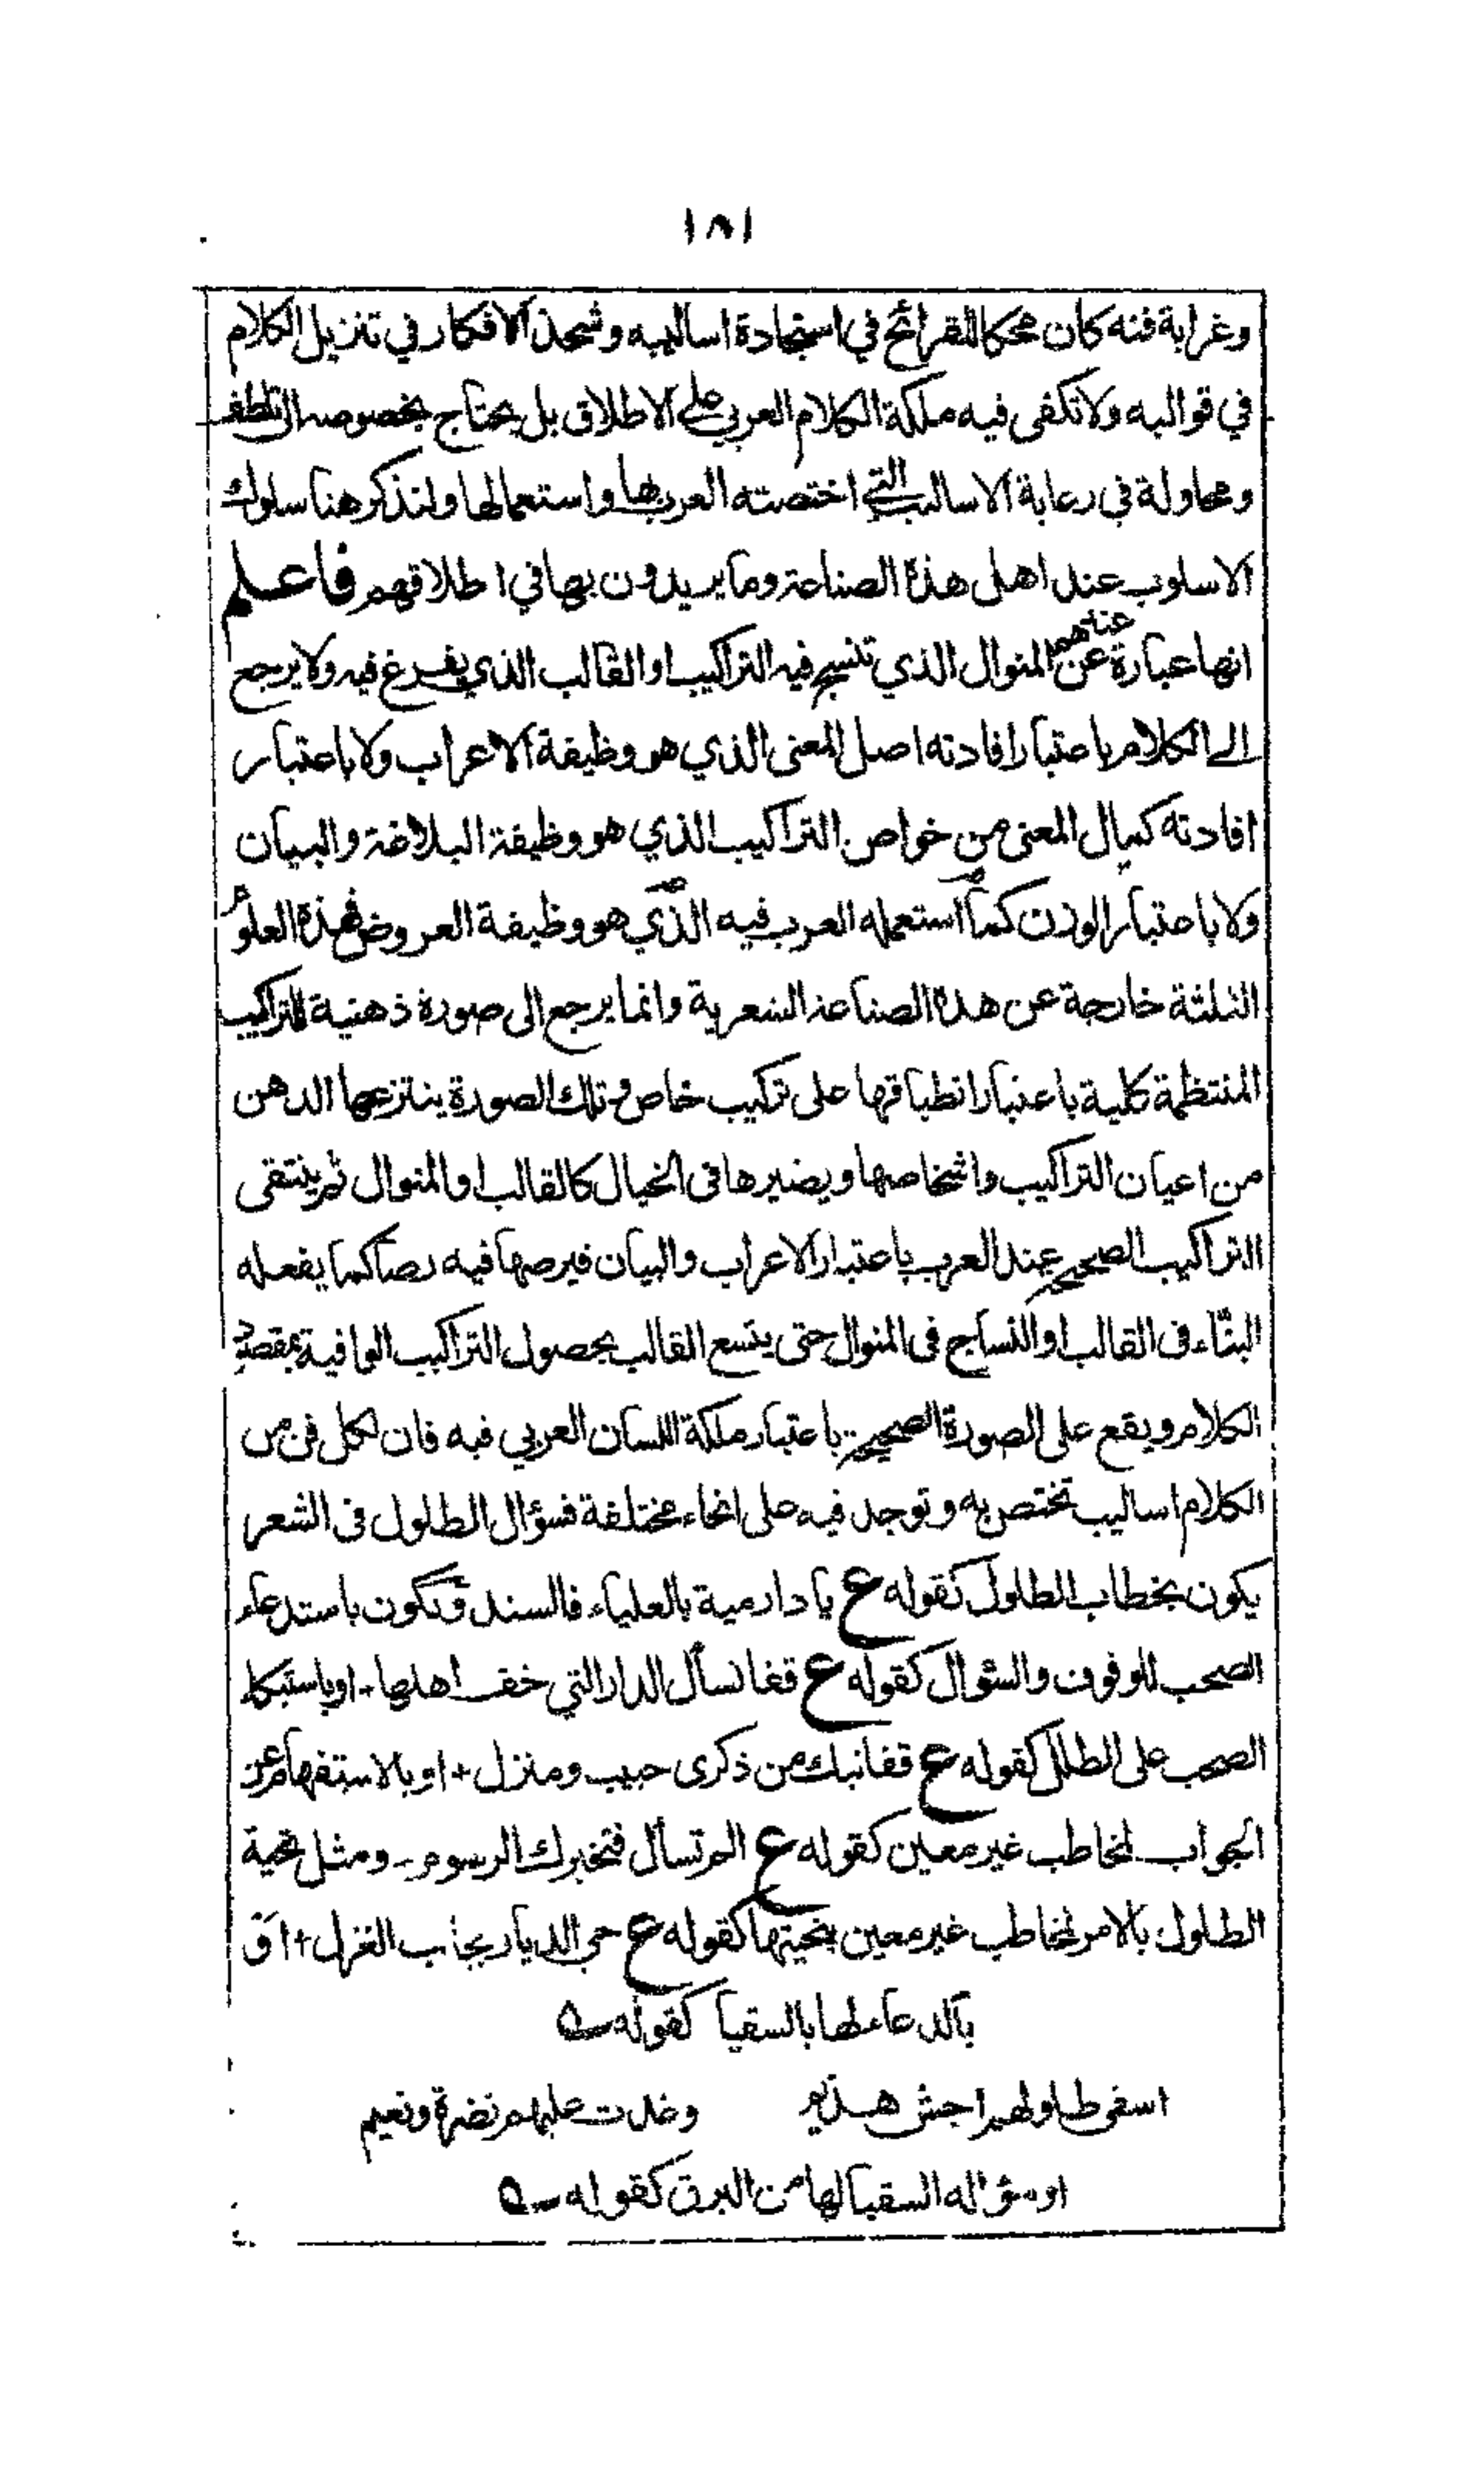 ١٨١
وغرابة فنه كان محكا للقرائح في استجادة اساليبه وشحذ الافكار في تنزيل الكلام
في قوالبه ولا تكفى فيه ملكة الكلام العربي على الاطلاق بل يحتاج بخصوصه الى تلطف
ومحاولة في رعاية الاساليب التي اختصته العرب بها واستعمالها ولنذكر هنا سلوك
الاسلوب عند اهل هذه الصناعة وما يريدون بها في اطلاقهم فاعلم
انها عبارة عندهم عن المنوال الذي تنسج فيه التراكيب او القالب الذي يفرغ فيه ولا يرجع
الى الكلام باعتبار افادته اصل المعنى الذي هو وظيفة الاعراب ولا باعتبار
افادته كمال المعنى من خواص التراكيب الذي هو وظيفة البلاغة والبيان
ولا باعتبار الوزن كما استعمله العرب فيه الذي هو وظيفة العروض فهذه العلوم
الثلثة خارجة عن هذه الصناعة الشعرية وانما يرجع الى صورة ذهنية للتراكيب
المنتظمة كلية باعتبار انطباقها على تركيب خاص وتلك الصورة ينتزعها الذهن
من اعيان التراكيب واشخاصها ويصيرها في الخيال كالقالب او المنوال ثم ينتقى
التراكيب الصحيحة عند العرب باعتبار الاعراب والبيان فيرصها فيه رصا كما يفعله
البناء في القالب او النساج فى المنوال حتى يتسع القالب بحصول التراكيب الوافية بمقصود
الكلام ويقع على الصورة الصحيحة باعتبار ملكة اللسان العربي فيه فان لكل فن من
الكلام اساليب تختص به وتوجد فيه على انحاء مختلفة فسؤال الطلول فى الشعر
يكون بخطاب الطلول كقوله ع يا دار مية بالعلياء فالسند وتكون باستدعاء
الصحب للوقوف والسؤال كقوله ع قفا نسأل الدار التي خف اهلها - او باستبكاء
الصحب على الطلل كقوله ع قفا نبك من ذكرى حبيب ومنزل + او بالاستفهام عن
الجواب لمخاطب غير معين كقوله ع الم تسأل فتخبرك الرسوم - ومثل تحية
الطلول بالامر لمخاطب غير معين بتحيتها كقوله ع حي الديار بجانب الغزل + او
بالدعاء لها بالسقيا كقوله ه
اسقى طلولهم اجش هذيم وغدت عليهم نضرة ونعيم
او سؤاله السقيا لها من البرق كقوله ه